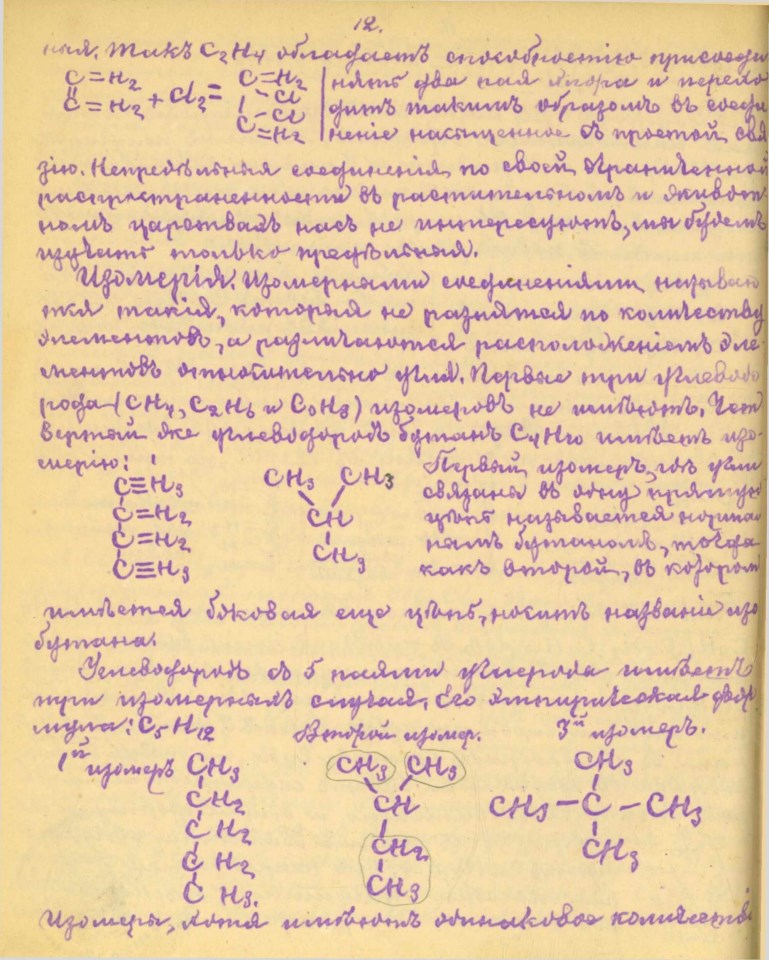 12.
ныя. Такъ C2H4 обладаетъ способностію присоеди
C=H2 C=H2 нять два пая хлора и перехо
‖ + Cl2 = | - Cl дитъ такимъ образомъ въ соеди
C=H2 | - Cl неніе насыщенное съ простой свя
C=H2
зію. Непредѣльныя соединенія, по своей ограниченной
распространенности въ растительномъ и живот
номъ царствахъ насъ не интересуютъ, мы будемъ
изучать только предѣльныя.
Изомерія. Изомерными соединеніями называю
тся такія, которыя не разнятся по количеству
элементовъ, а различаются расположеніемъ эле-
ментовъ относительно угля. Первые три углеводо
рода (CH4, C2H6 и C3H8) изомеровъ не имѣютъ. Чет
вертый же углеводородъ бутанъ C4H10 имѣетъ изо-
мерію:
C≡H3
C=H2
C=H2
C≡H3
CH3 CH3
CH
CH3
Первый изомеръ, гдѣ угли
связаны въ одну прямую
цѣпь называется нормаль
нымъ бутаномъ, тогда
какъ второй, въ которомъ
имѣется боковая еще цѣпь, носитъ названіе изо
бутана.
Углеводородъ съ 5 паями углерода имѣетъ
три изомерныхъ случая. Его эмпирическая фор
мула: C5H12 Второй изомер. 3й изомеръ.
1й изомеръ CH3
CH2
CH2
CH2
CH3.
CH3 CH3
CH
CH2
CH3
CH3
CH3-C-CH3
CH3
Изомеры, хотя имѣютъ одинаковое количество